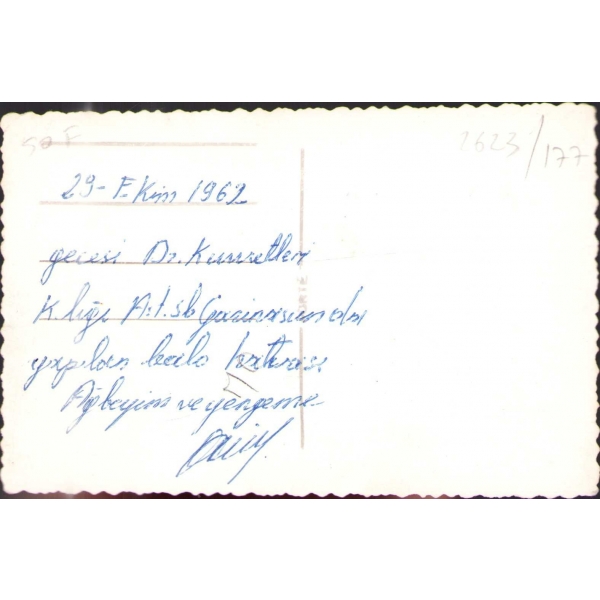 50 F
1623/177
29-Ekim 1962
gecesi Dz. Kuvvetleri
K.lığı Ast.sb Gazinosunda
yapılan balo hatırası
Ağbeyim ve yengeme